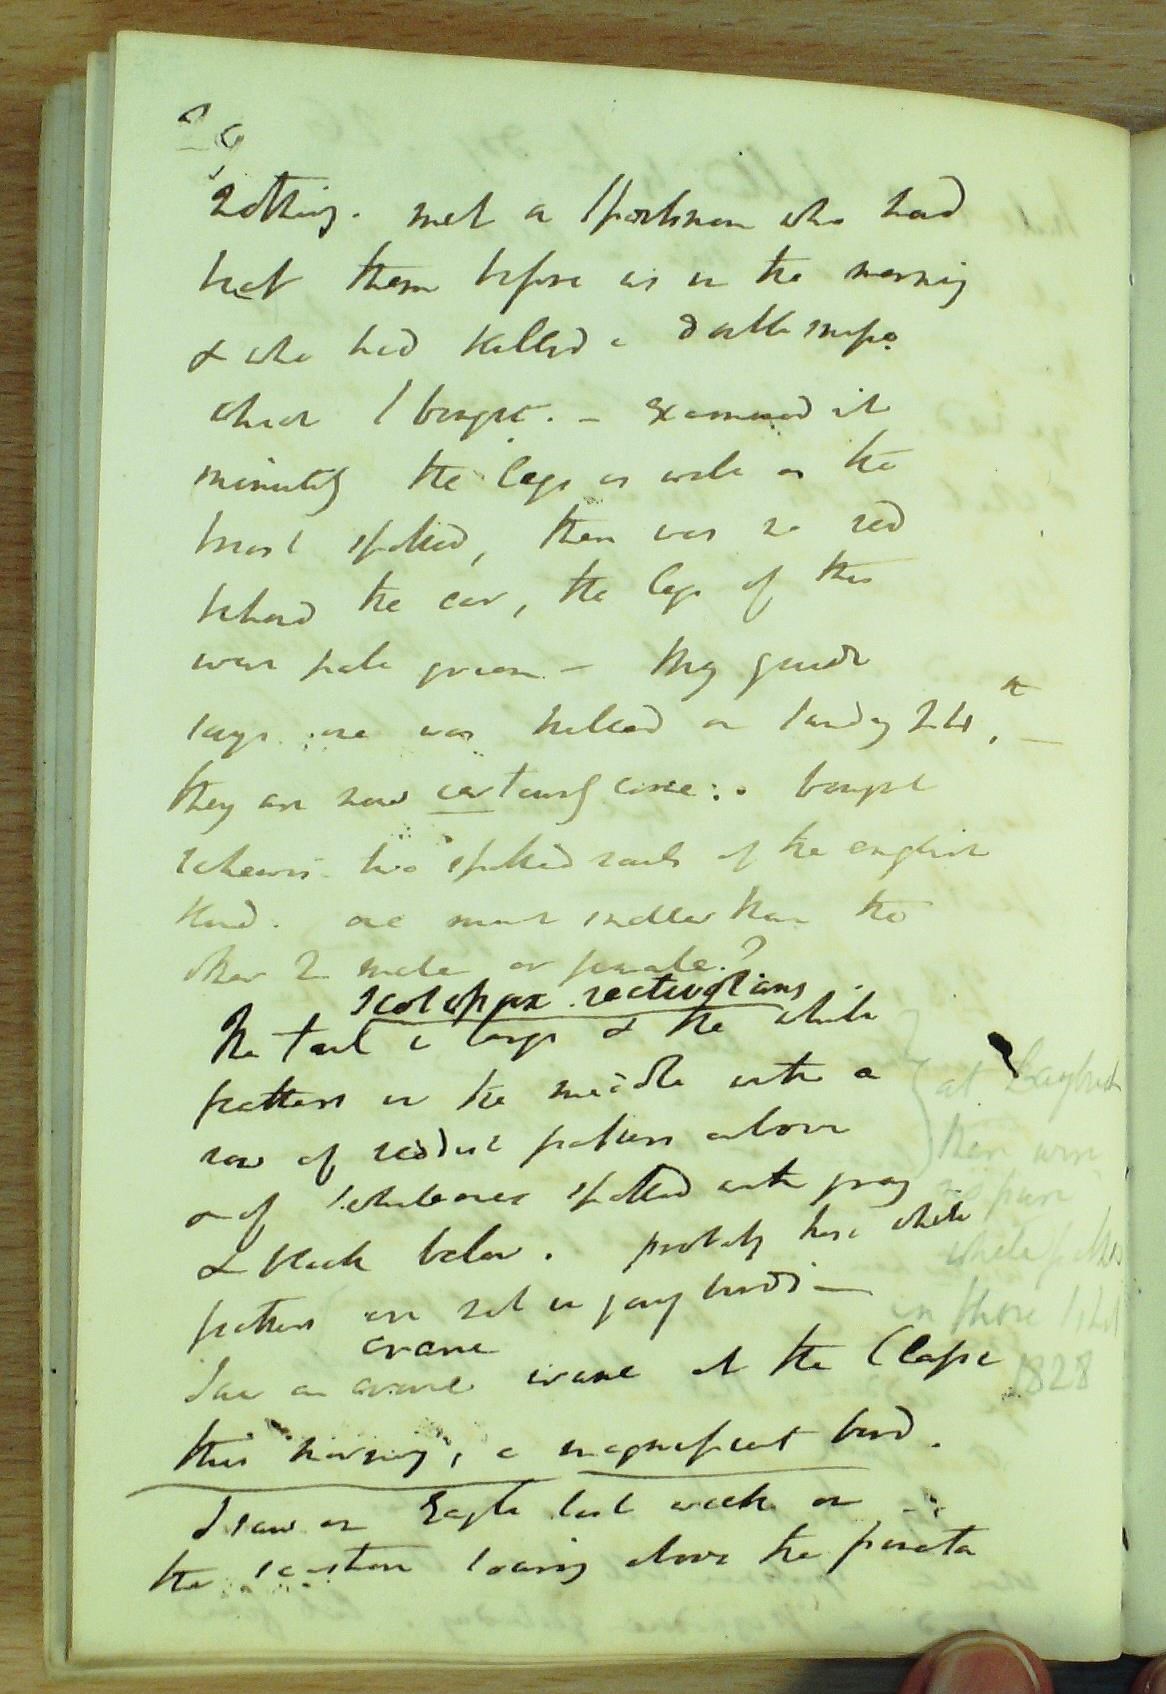 nothing. met a sportsman who had
beat them before us in the morning
& who had killed a double snipe
which I bought. - Examined it
minutely the legs as well as the
breast spotted, there was no red
behind the ear, the legs of this
were pale green - My guide
says one was killed on Sunday 24th. -
they are now certainly come: . bought
likewise two spotted rails of the english
kind. one much smaller than the
other 2 male or female.?
Scolopax
The tail is large & the white
feathers in the middle with a
row of reddish feathers above
& of white ones spotted with gray
& black below. probably these white
feathers are not in young birds -
crane
Saw a crane at the
this morning, a magnificent bird.
I saw an Eagle last week on
the soaring above the pineta
at
there were
no pure
white feathers
in those
1828